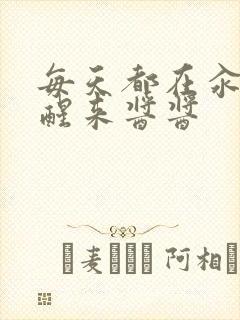 每天都在汆
醒来酱酱
麦 阿相